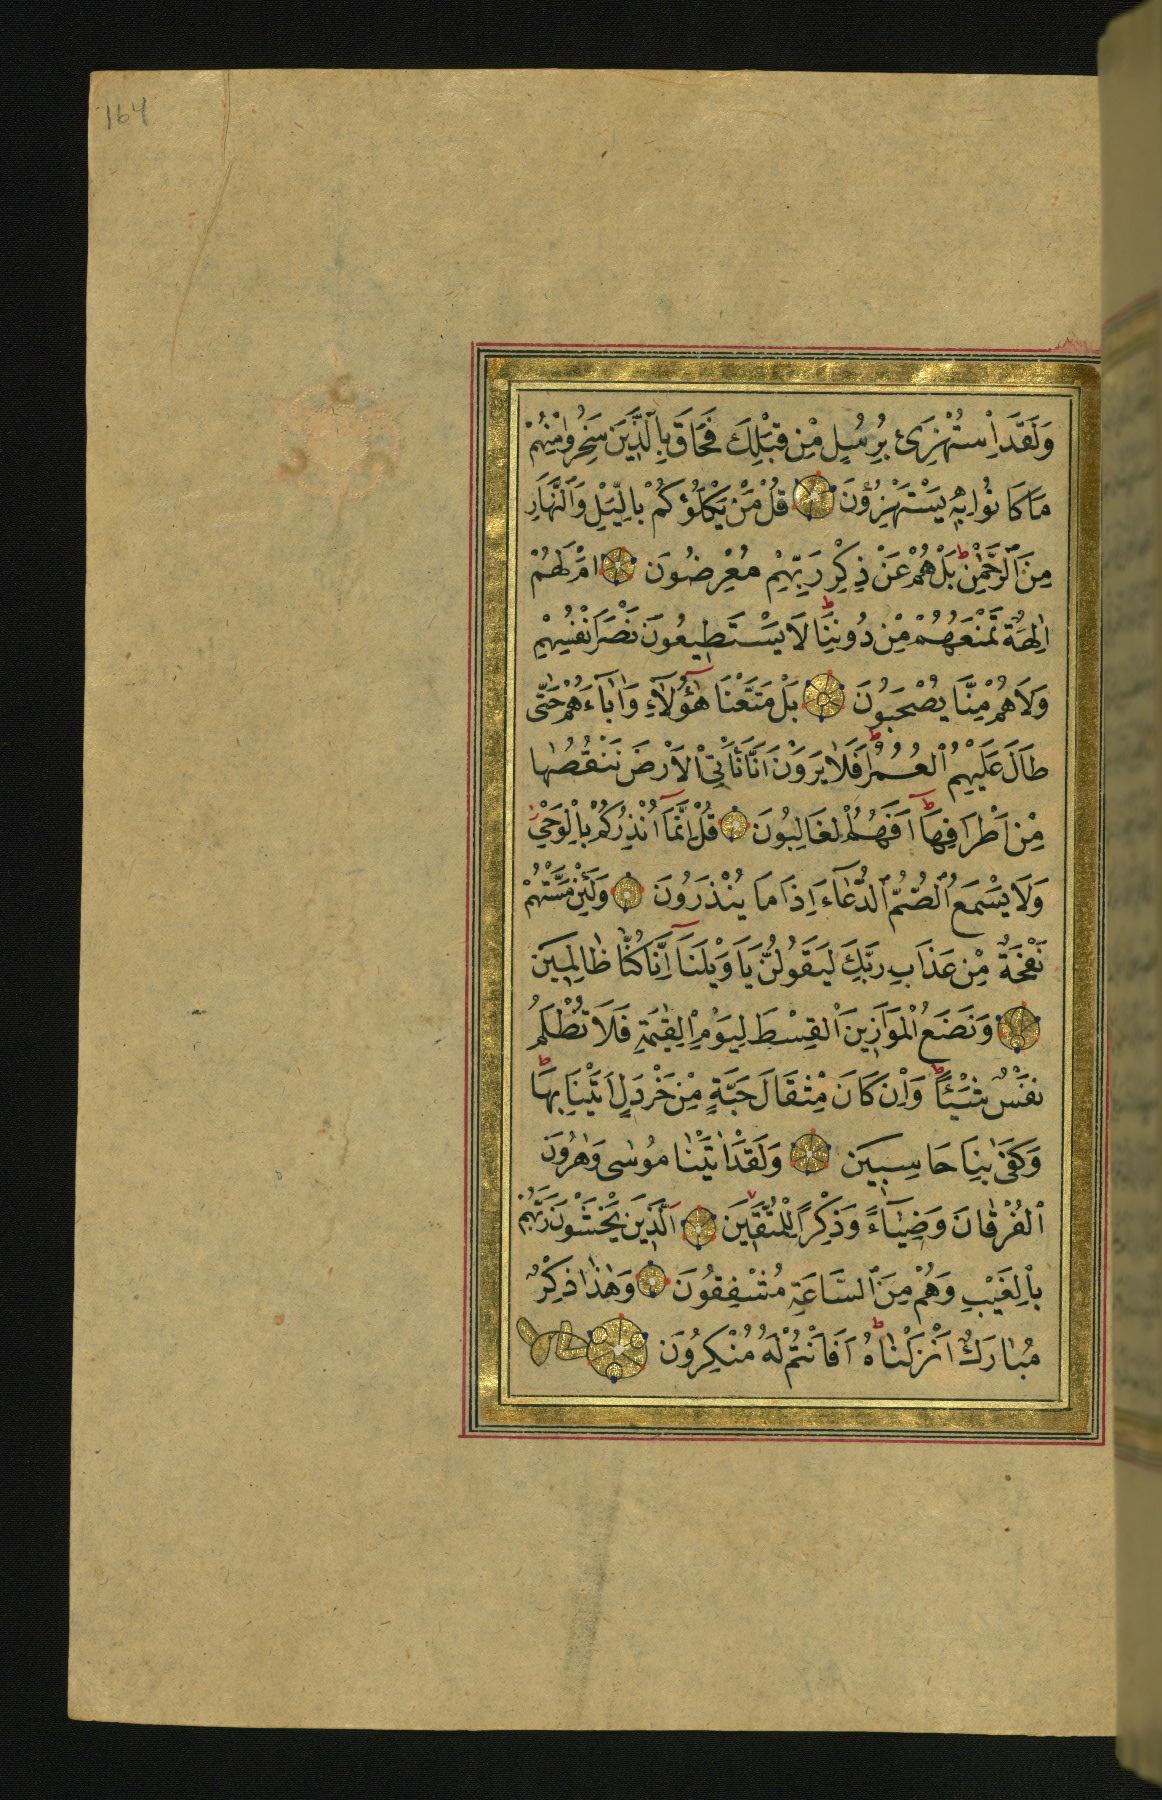 164
وَلَقَدِ اسْتُهْزِئَ بِرُسُلٍ مِنْ قَبْلِكَ فَحَاقَ بِالَّذِينَ سَخِرُوا مِنْهُمْ
مَا كَانُوا بِهِ يَسْتَهْزِؤُنَ قُلْ مَنْ يَكْلَؤُكُمْ بِالَّيْلِ وَالنَّهَارِ
مِنَ الرَّحْمٰنِ ط بَلْ هُمْ عَنْ ذِكْرِ رَبِّهِمْ مُعْرِضُونَ اَمْ لَهُمْ
اٰلِهَةٌ تَمْنَعُهُمْ مِنْ دُونِنَا ط لَا يَسْتَطِيعُونَ نَصْرَ اَنْفُسِهِمْ
وَلَا هُمْ مِنَّا يُصْحَبُونَ بَلْ مَتَّعْنَا هٰؤُلَآءِ وَاٰبَآءَهُمْ حَتّٰى
طَالَ عَلَيْهِمُ الْعُمُرُ ط اَفَلَا يَرَوْنَ اَنَّا نَأْتِي الْاَرْضَ نَنْقُصُهَا
مِنْ اَطْرَافِهَا ط اَفَهُمُ الْغَالِبُونَ قُلْ اِنَّمَآ اُنْذِرُكُمْ بِالْوَحْيِ ز
وَلَا يَسْمَعُ الصُّمُّ الدُّعَآءَ اِذَا مَا يُنْذَرُونَ وَلَئِنْ مَسَّتْهُمْ
نَفْحَةٌ مِنْ عَذَابِ رَبِّكَ لَيَقُولُنَّ يَا وَيْلَنَآ اِنَّا كُنَّا ظَالِمِينَ
وَنَضَعُ الْمَوَازِينَ الْقِسْطَ لِيَوْمِ الْقِيٰمَةِ فَلَا تُظْلَمُ
نَفْسٌ شَيْئًا ط وَاِنْ كَانَ مِثْقَالَ حَبَّةٍ مِنْ خَرْدَلٍ اَتَيْنَا بِهَا ط
وَكَفٰى بِنَا حَاسِبِينَ وَلَقَدْ اٰتَيْنَا مُوسٰى وَهٰرُونَ
الْفُرْقَانَ وَضِيَآءً وَذِكْرًا لِلْمُتَّقِينَ لا الَّذِينَ يَخْشَوْنَ رَبَّهُمْ
بِالْغَيْبِ وَهُمْ مِنَ السَّاعَةِ مُشْفِقُونَ وَهٰذَا ذِكْرٌ
مُبَارَكٌ اَنْزَلْنَاهُ ط اَفَاَنْتُمْ لَهُ مُنْكِرُونَ